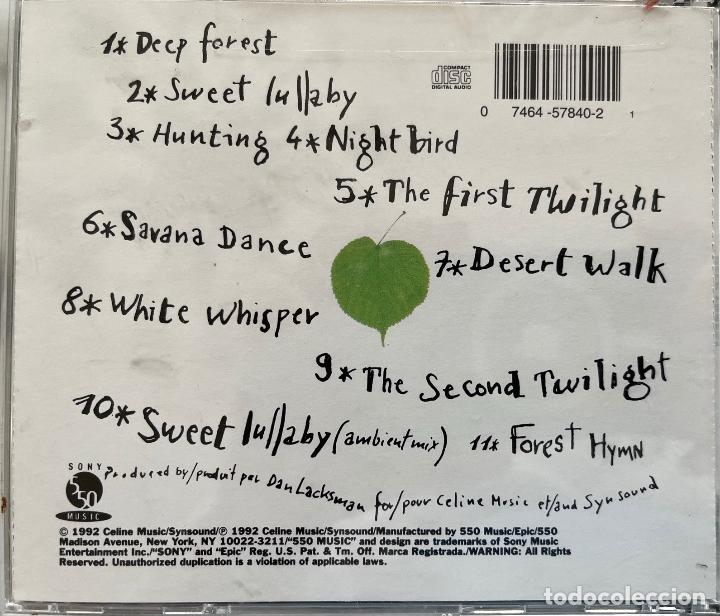 1* Deep forest
COMPACT
disc
DIGITAL AUDIO
2* Sweet lullaby
0 7464-57840-2 1
3* Hunting 4* Night bird
5* The first Twilight
6* Savana Dance
7* Desert Walk
8* White Whisper
9* The Second Twilight
10* Sweet lullaby (ambient mix) 11* Forest HYMN
SONY
550
MUSIC
Produced by/produit par Dan Lacksman for/pour Celine Music et/and Synsound
© 1992 Celine Music/Synsound/℗ 1992 Celine Music/Synsound/Manufactured by 550 Music/Epic/550
Madison Avenue, New York, NY 10022-3211/"550 MUSIC" and design are trademarks of Sony Music
Entertainment Inc./"SONY" and "Epic" Reg. U.S. Pat. & Tm. Off. Marca Registrada./WARNING: All Rights
Reserved. Unauthorized duplication is a violation of applicable laws.
todocoleccion